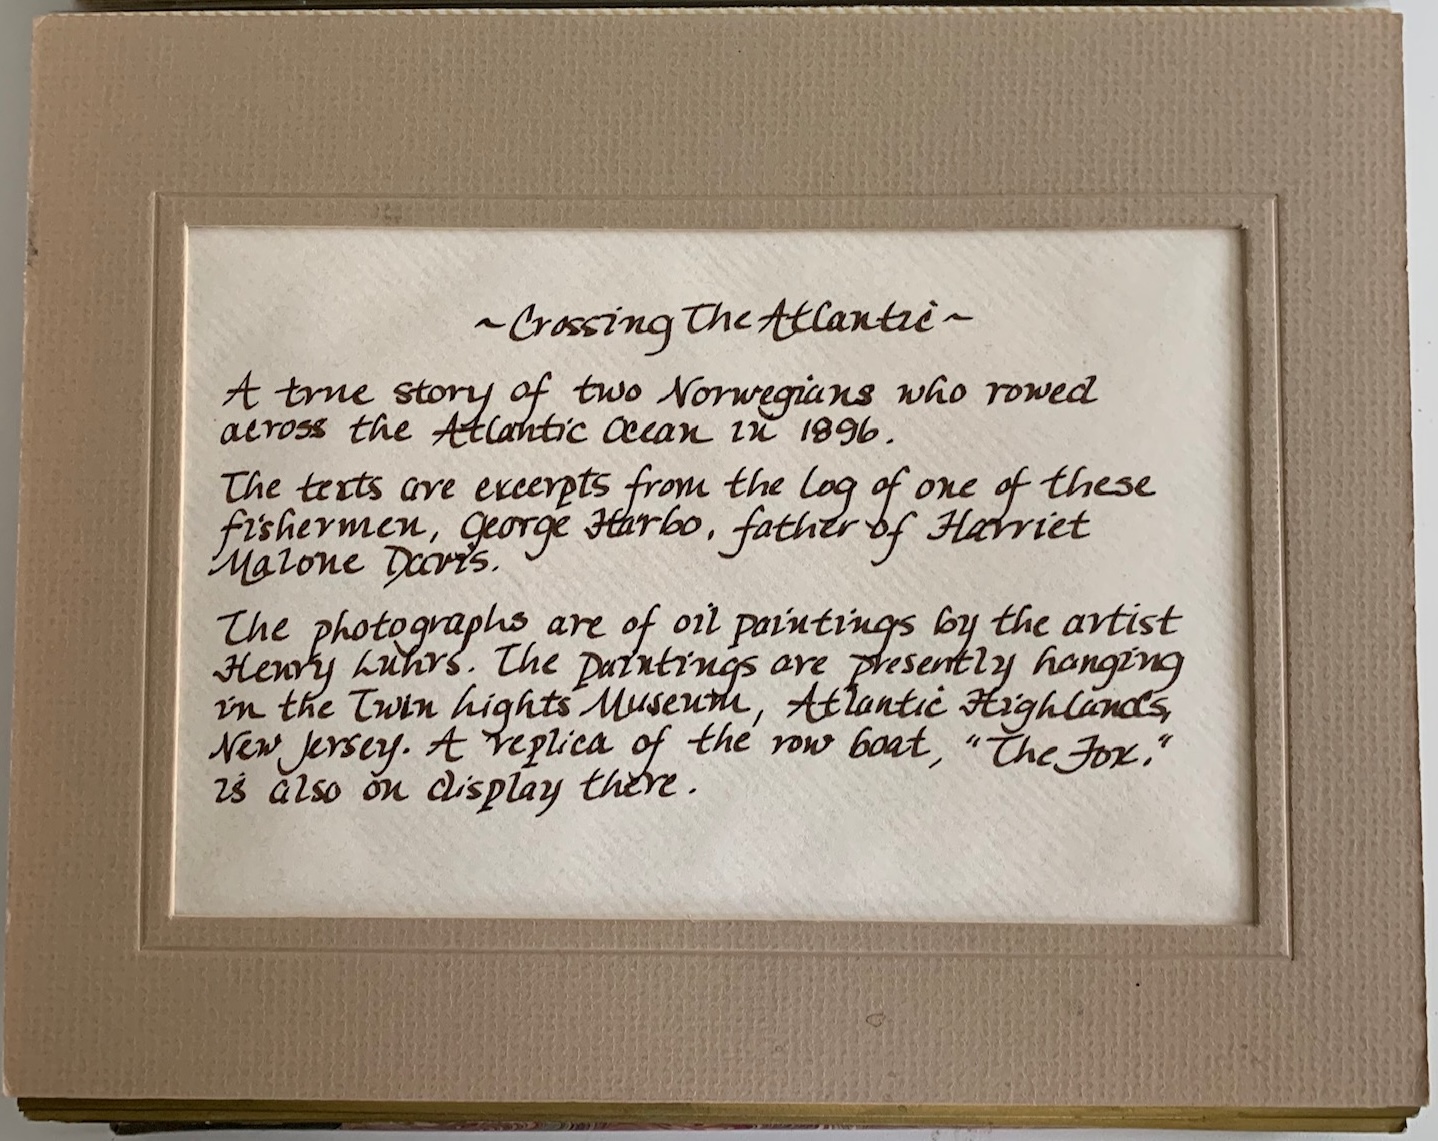 ~Crossing The Atlantic~
A true story of two Norwegians who rowed
across the Atlantic Ocean in 1896.
The texts are excerpts from the log of one of these
fishermen, George Harbo, father of Harriet
Malone Davis.
The photographs are of oil paintings by the artist
Henry Luhrs. The paintings are presently hanging
in the Twin hights Museum, Atlantic Highlands,
New Jersey. A replica of the row boat, "The Fox."
is also on display there.